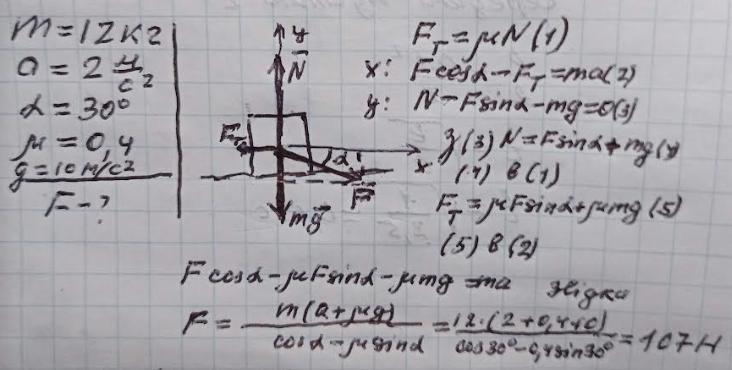 m = 12 кг
a = 2 м/с²
α = 30°
μ = 0,4
g = 10 м/с²
F - ?
y
N
Fт
α
x
F
mg
Fт = μN (1)
x: Fcosα - Fт = ma (2)
y: N - Fsinα - mg = 0 (3)
З (3) N = Fsinα + mg (4)
(4) в (1)
Fт = μFsinα + μmg (5)
(5) в (2)
Fcosα - μFsinα - μmg = ma звідки
F = m(a+μg) / cosα - μsinα = 12·(2+0,4·10) / cos30° - 0,4sin30° = 107 Н